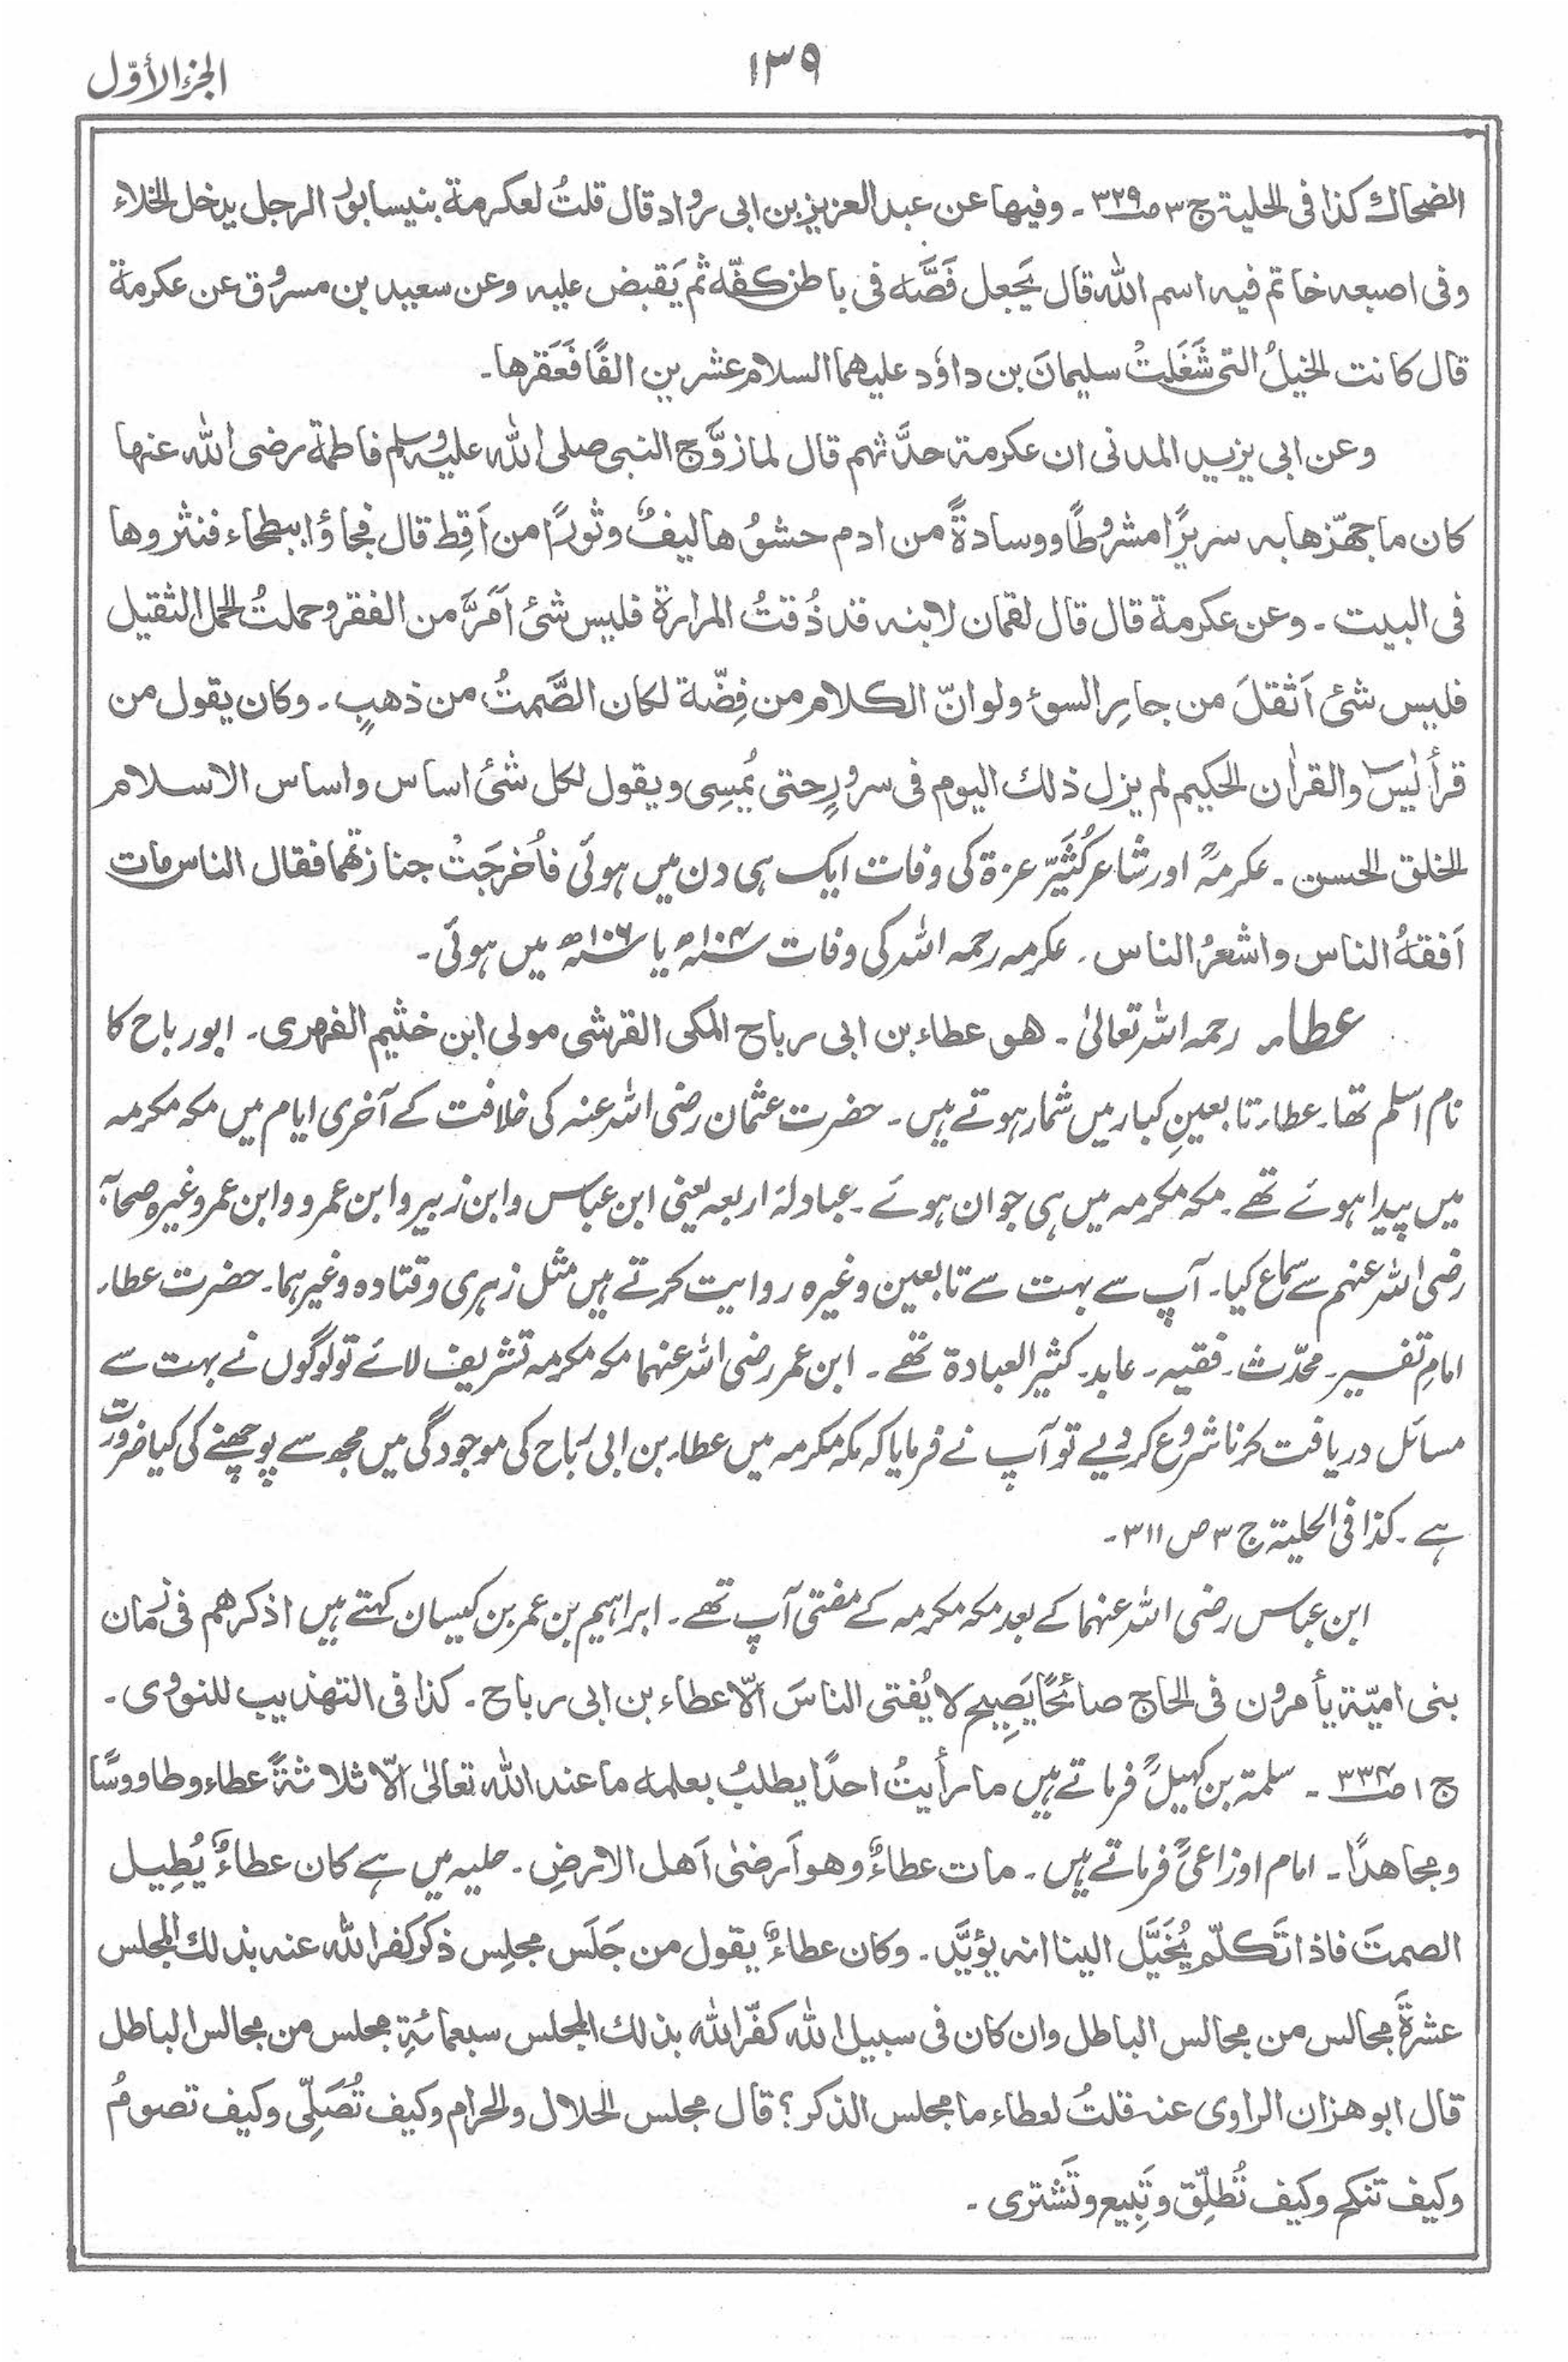 ١٣٩
الجزء الأوّل
الضحاك كذا فى الحلية ج ٣ صـ ٣٢٩ ۔ وفيها عن عبد العزيز بن ابى رواد قال قلتُ لعكرمة بنيسابورُ الرجل يدخل الخلاء
وفى اصبعه خاتم فيه اسم الله قال يَجعل فَصَّه فى باطن كفّه ثم يَقبض عليه وعن سعيد بن مسروق عن عكرمة
قال كانت الخيلُ التى شَغَلَتْ سليمانَ بن داوٗد عليهما السلام عشرين الفًا فَعَقَرها۔
وعن ابى يزيد المدنى ان عكرمة حدَّثهم قال لما زوَّج النبى صلى الله عليه وسلم فاطمة رضى الله عنها
كان ما جهّزها به سريرًا مشروطًا ووسادةً من ادم حشوُها ليفٌ وثورًا من اَقِط قال فجاؤا ببطحاء فنثروها
فى البيت ۔ وعن عكرمة قال قال لقمان لابنه قد ذُقتُ المرارة فليس شئ اَمَرَّ من الفقر وحملتُ الحمل الثقيل
فليس شئ اَثقلَ من جارِ السوء ولو انّ الكلام من فِضّة لكان الصَّمتُ من ذهبٍ ۔ وكان يقول من
قرأ يٰسٓ والقراٰن الحكيم لم يزل ذلك اليوم فى سرورٍ حتى يُمسِى ويقول لكل شئ اساس واساس الاسلام
الخلق الحسن ۔ عکرمہؒ اور شاعر کُثَیِّر عزة کی وفات ایک ہی دن میں ہوئی فاُخرجَتْ جنازتهما فقال الناس مات
اَفقهُ الناس واشعرُ الناس ۔ عکرمہ رحمہ اللہ کی وفات ۱۰۴ھ یا ۱۰۶ھ میں ہوئی ۔
عطاء رحمہ اللہ تعالیٰ ۔ هو عطاء بن ابى رباح المكى القرشى مولى ابن خثيم الفهرى ۔ ابورباح کا
نام اسلم تھا ۔ عطاء تابعینِ کبار میں شمار ہوتے ہیں ۔ حضرت عثمان رضی اللہ عنہ کی خلافت کے آخری ایام میں مکہ مکرمہ
میں پیدا ہوئے تھے ۔ مکہ مکرمہ میں ہی جوان ہوئے ۔ عبادلۂ اربعہ یعنی ابن عباس و ابن زبیر و ابن عمرو و ابن عمر وغیرہ صحابہ
رضی اللہ عنہم سے سماع کیا ۔ آپ سے بہت سے تابعین وغیرہ روایت کرتے ہیں مثل زہری و قتادہ وغیرہما ۔ حضرت عطاء
امامِ تفسیر ۔ محدّث ۔ فقیہ ۔ عابد ۔ کثیر العبادة تھے ۔ ابن عمر رضی اللہ عنہما مکہ مکرمہ تشریف لائے تو لوگوں نے بہت سے
مسائل دریافت کرنا شروع کر دیے تو آپ نے فرمایا کہ مکہ مکرمہ میں عطاء بن ابی رَباح کی موجودگی میں مجھ سے پوچھنے کی کیا ضرورت
ہے ۔ کذا فی الحلیة ج ۳ ص ۳۱۱ ۔
ابن عباس رضی اللہ عنہما کے بعد مکہ مکرمہ کے مفتی آپ تھے ۔ ابراہیم بن عمر بن کیسان کہتے ہیں اذكرهم فى زمان
بنى اميّة يأمرون فى الحاج صائحًا يَصِيح لا يُفتى الناسَ الّا عطاء بن ابى رباح ۔ كذا فى التهذيب للنووى ۔
ج ١ صـ ٣٣٤ ۔ سلمة بن کہیلؒ فرماتے ہیں ما رأيتُ احدًا يطلبُ بعلمه ما عند الله تعالىٰ الّا ثلاثةً عطاء وطاووسًا
ومجاهدًا ۔ امام اوزاعیؒ فرماتے ہیں ۔ مات عطاءٌ وهو اَرضىٰ اَهل الارضِ ۔ حلیہ میں ہے كان عطاءٌ يُطِيل
الصمتَ فاذا تَكلّم يُخَيَّل الينا انه يؤيَّد ۔ وكان عطاءٌ يقول من جَلَس مجلِس ذكر كفر الله عنه بذلك المجلس
عشرةَ مجالس من مجالس الباطل وان كان فى سبيل الله كفّر الله بذلك المجلس سبعمائةِ مجلس من مجالس الباطل
قال ابو هزان الراوى عنه قلتُ لعطاء ما مجلس الذكر؟ قال مجلس الحلال والحرام وكيف تُصَلِّى وكيف تصومُ
وكيف تنكح وكيف تُطلِّق وتَبِيع وتَشترى ۔